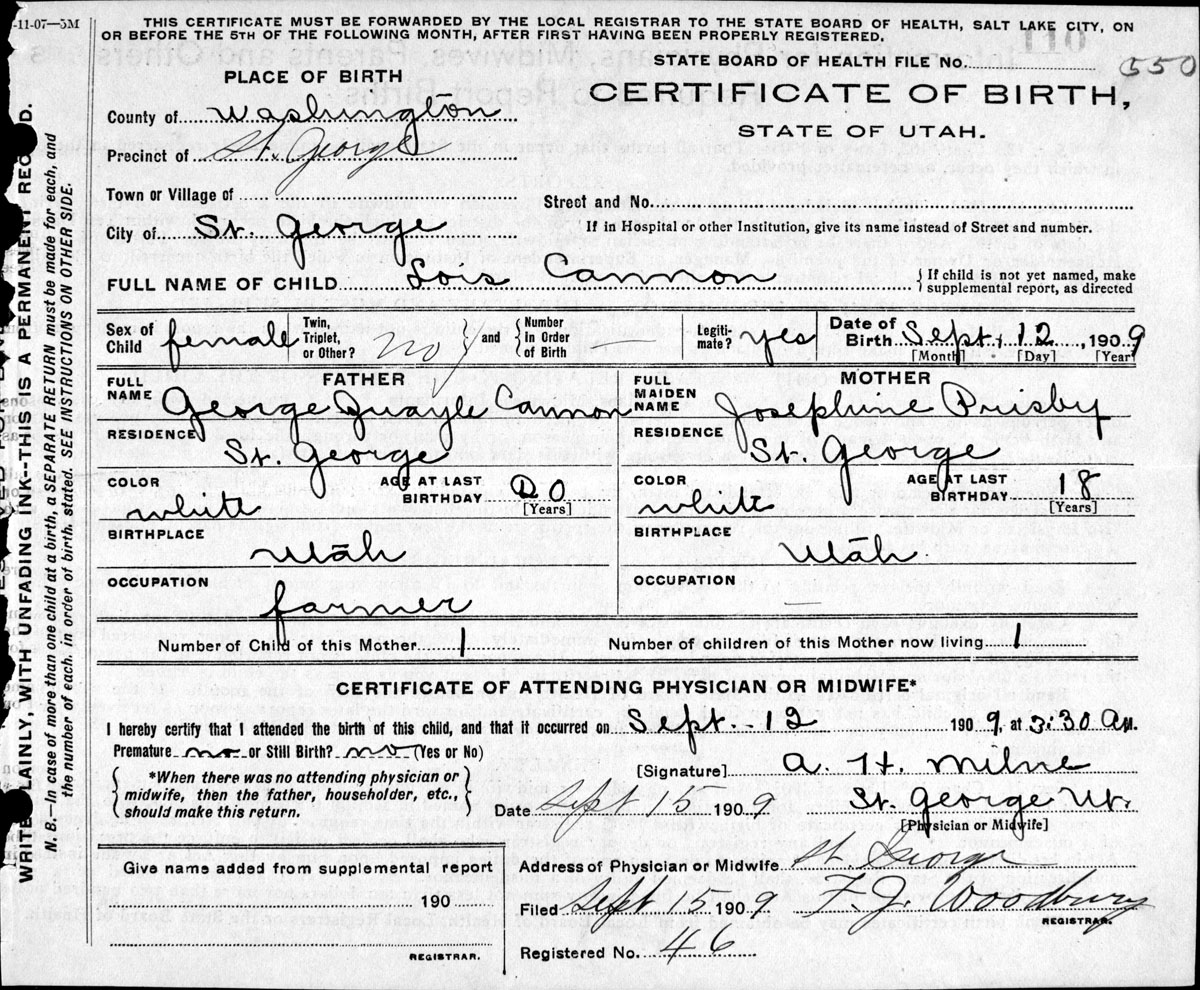 -11-07—5M
THIS CERTIFICATE MUST BE FORWARDED BY THE LOCAL REGISTRAR TO THE STATE BOARD OF HEALTH, SALT LAKE CITY, ON
OR BEFORE THE 5TH OF THE FOLLOWING MONTH, AFTER FIRST HAVING BEEN PROPERLY REGISTERED.
110
STATE BOARD OF HEALTH FILE No. 550
PLACE OF BIRTH
CERTIFICATE OF BIRTH,
STATE OF UTAH.
County of Washington
Precinct of St. George
Town or Village of
Street and No.
City of St. George
If in Hospital or other Institution, give its name instead of Street and number.
FULL NAME OF CHILD Lois Cannon
{ If child is not yet named, make
supplemental report, as directed
Sex of Child female
Twin, Triplet, or Other? no } and { Number In Order of Birth —
Legiti- mate? yes
Date of Birth Sept. 12, 1909
[Month] [Day] [Year]
FATHER
FULL NAME George Quayle Cannon
MOTHER
FULL MAIDEN NAME Josephine Prisby
RESIDENCE St. George
RESIDENCE St. George
COLOR white
AGE AT LAST BIRTHDAY 20 [Years]
COLOR white
AGE AT LAST BIRTHDAY 18 [Years]
BIRTHPLACE Utah
BIRTHPLACE Utah
OCCUPATION farmer
OCCUPATION —
Number of Child of this Mother 1
Number of children of this Mother now living 1
CERTIFICATE OF ATTENDING PHYSICIAN OR MIDWIFE*
I hereby certify that I attended the birth of this child, and that it occurred on Sept. 12 1909, at 3:30 AM.
Premature no or Still Birth? no (Yes or No)
{ *When there was no attending physician or
midwife, then the father, householder, etc.,
should make this return. }
[Signature] A. H. Milne
Date Sept 15 1909
St. George Ut.
[Physician or Midwife]
Give name added from supplemental report
190
REGISTRAR.
Address of Physician or Midwife St. George
Filed Sept 15 1909 F. J. Woodbury
REGISTRAR.
Registered No. 46
WRITE PLAINLY, WITH UNFADING INK--THIS IS A PERMANENT RECORD.
N. B.—In case of more than one child at a birth, a SEPARATE RETURN must be made for each, and
the number of each, in order of birth, stated. SEE INSTRUCTIONS ON OTHER SIDE.